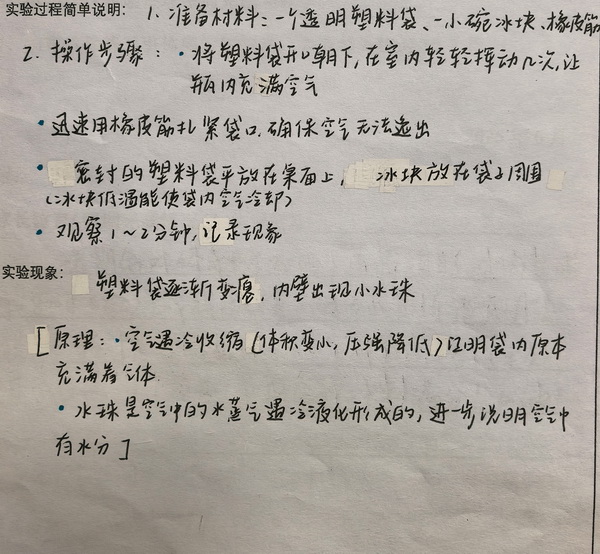 实验过程简单说明：1. 准备材料：一个透明塑料袋、一小碗冰块、橡皮筋
2. 操作步骤：·将塑料袋开口朝下，在室内轻轻挥动几次，让
瓶内充满空气
·迅速用橡皮筋扎紧袋口，确保空气无法逸出
·密封的塑料袋平放在桌面上，冰块放在袋子周围
（冰块低温能使袋内空气冷却）
·观察1～2分钟，记录现象
实验现象：塑料袋逐渐变瘪，内壁出现小水珠
[原理：·空气遇冷收缩（体积变小，压强降低）证明袋内原本
充满着气体
·水珠是空气中的水蒸气遇冷液化形成的，进一步说明空气中
有水分]